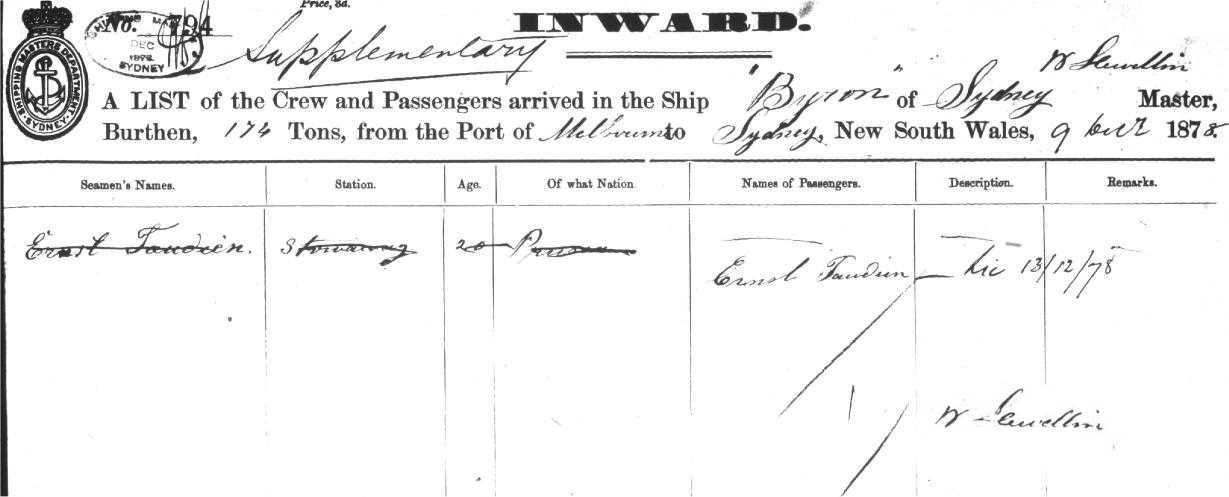 Price, 3d.
No. 794
INWARD.
SHIPPING MASTERS DEPARTMENT SYDNEY
DEC
1878
SYDNEY
Supplementary
W Llewellin
A LIST of the Crew and Passengers arrived in the Ship "Byron" of Sydney Master,
Burthen, 174 Tons, from the Port of Melbourne to Sydney, New South Wales, 9 1878.
Seamen's Names. Station. Age. Of what Nation Names of Passengers. Description. Remarks.
Ernst Taudien. Stowaway 20
Ernst Taudien 13/12/78
W Llewellin